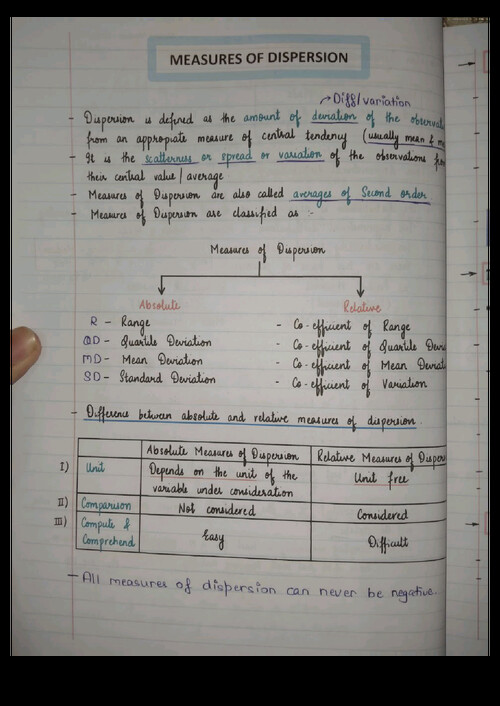 MEASURES OF DISPERSION
Diff/variation
- Dispersion is defined as the amount of deviation of the
from an appropiate measure of central tendency (usually mean &
- It is the scatterness or spread or variation of the observations
their central value / average
- Measures of Dispersion are also called averages of Second order
- Measures of Dispersion are classified as :-
Measures of Dispersion
Absolute Relative
R - Range - Co-efficient of Range
QD - Quartile Deviation - Co-efficient of Quartile
MD - Mean Deviation - Co-efficient of Mean
SD - Standard Deviation - Co-efficient of Variation
- Difference between absolute and relative measures of dispersion.
Absolute Measures of Dispersion Relative Measures of
I) Unit Depends on the unit of the Unit free
variable under consideration
II) Comparison Not considered Considered
III) Compute &
Comprehend Easy Difficult
- All measures of dispersion can never be negative.